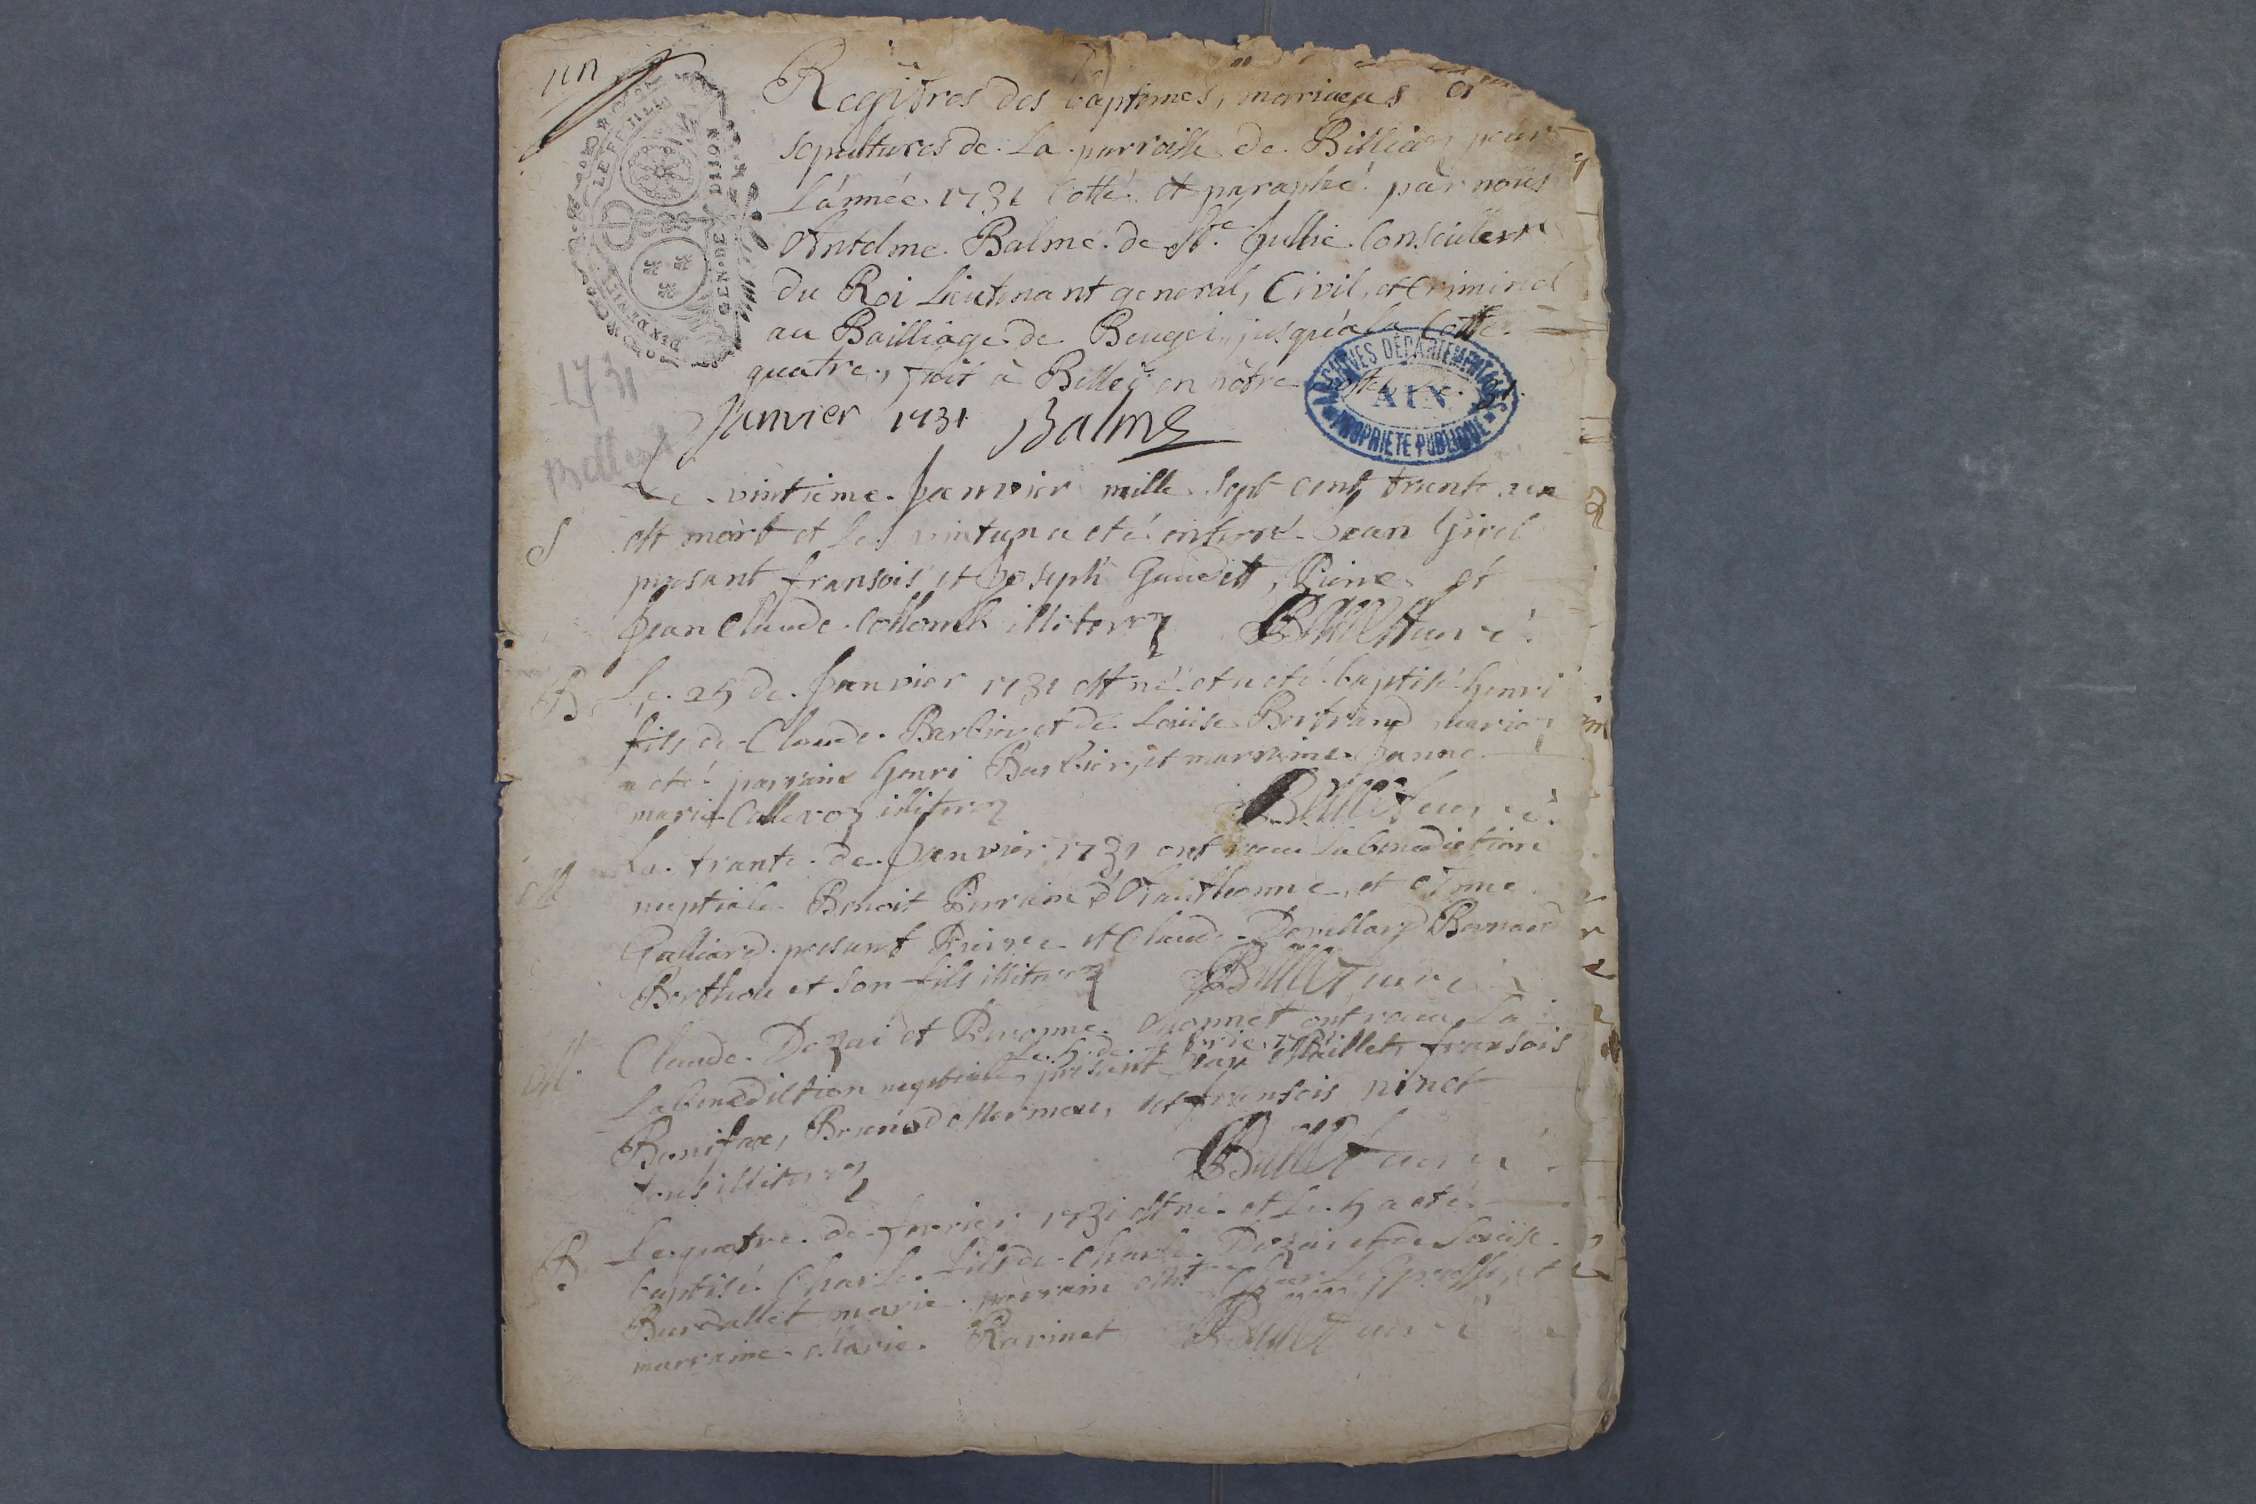 un
LE FEUILLE
GEN·DE DIJON
Registres des baptimes, mariages et
sepultures de la parroisse de Billiaz pour
l'année 1731 Cotté et paraphé par nous
Antelme Balme de Ste Jullie Conseiller
du Roi Lieutenant general, Civil, et Criminel
au Bailliage de Beugei jusqu'à la Cotte
quatre, fait à Belley en nôtre hostel le 31
Janvier 1731 Balme
ARCHIVES DÉPARTEMENTALES
AIN
PROPRIÉTÉ PUBLIQUE
1731
Le vintieme Janvier mille sept cent trente un
S
est mort et le vintun a eté enterré Jean Girel
present fransois et Joseph Gaudet, Pierre et
Jean Claude Collomb illiterez Billiet curé
B
Le 25 de Janvier 1731 est né et a eté baptisé henri
fils de Claude Barbier et de Louise Bertrand mariez
a eté parrain henri Barbier, et marraine Janne
marie Callevoz illiterez Billiet curé
M
La trante de Janvier 1731 ont receu la benediction
nuptiale Benoit Perrain et
Galliard present Pierre et Claude Devillard Bernard
Berthou et son fils illiterez Billiet curé
M
Claude Dozai et Peronne ont receu la
le 5 de fevrie 1731
la benediction nuptiale present Maillet fransois
Boniface, Brunod et fransois pinet
tous illiterez Billiet curé
B
Le quatre de fevrier 1731 est né et le 5 a eté
baptisé Charle fils de Charle Dozai et de Louise
Burdallet marie parrain Charle et
marraine Marie Ravinet Billiet curé